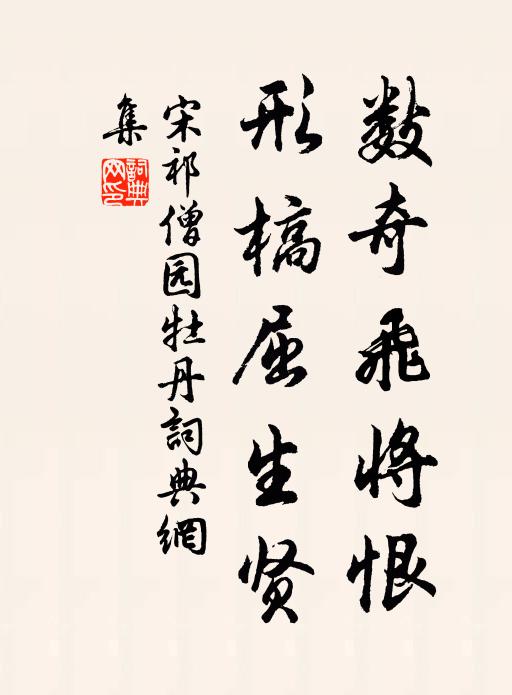 数奇飛将恨
形槁屈生贤
宋祁僧园牡丹詞典網
集
詞典網印